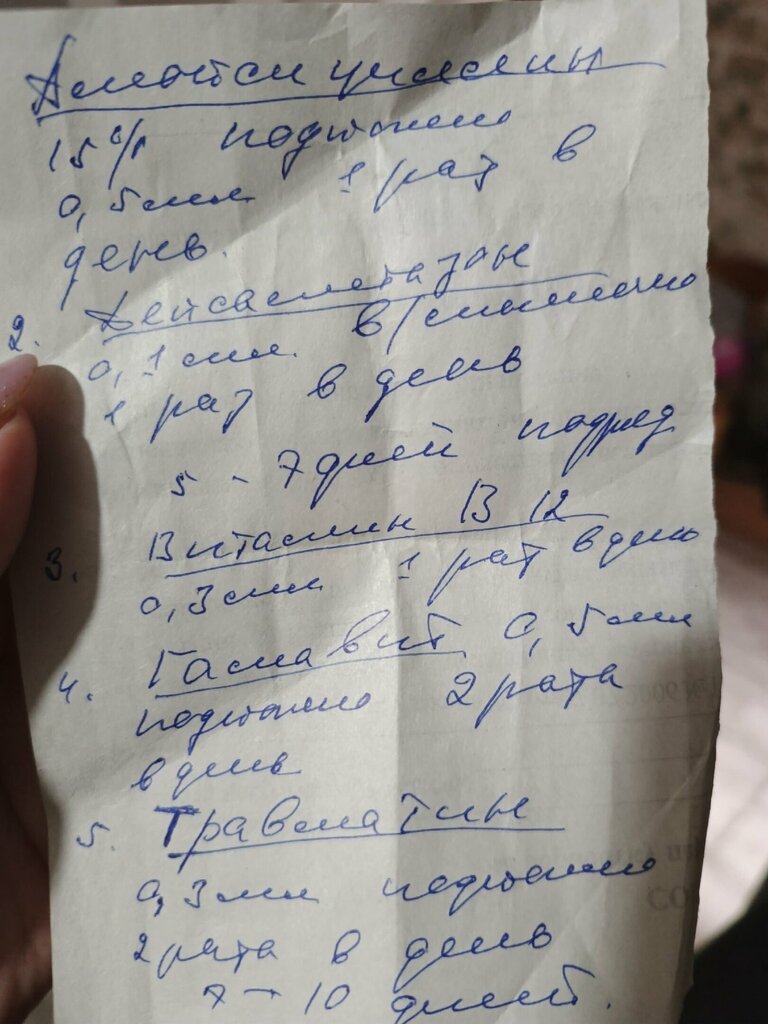 Амоксициллин
15% подкожно
0,5 мл 1 раз в
день.
2. Дексаметазон
0,1 мл. в/мышечно
1 раз в день
5 - 7 дней подряд
3. Витамин В 12
0,3 мл 1 раз в день
4. Гамавит 0,5 мл
подкожно 2 раза
в день
5. Травматин
0,3 мл подкожно
2 раза в день
7 - 10 дней.